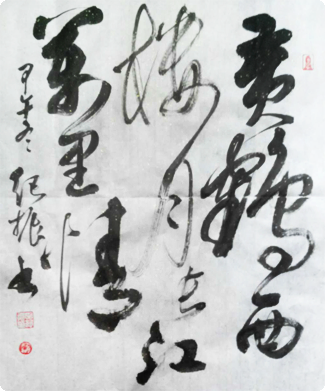 黄鹤西
楼月长江
万里情
甲午冬
纪振书